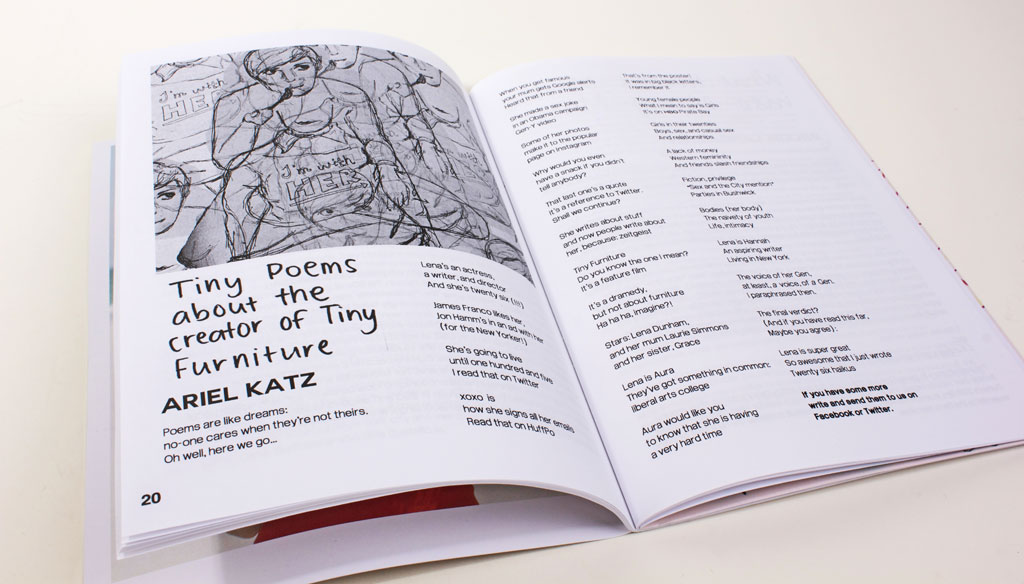 I'm with
HER
I'm with
HER
Tiny Poems
about the
creator of Tiny
Furniture
ARIEL KATZ
Poems are like dreams:
no-one cares when they're not theirs.
Oh well, here we go...
20
Lena's an actress,
a writer, and director
And she's twenty six (!!!)
James Franco likes her,
Jon Hamm's in an ad with her
(for the New Yorker!)
She's going to live
until one hundred and five
I read that on Twitter
xoxo is
how she signs all her emails
Read that on HuffPo
When you get famous
your mum gets Google alerts
Heard that from a friend
She made a sex joke
in an Obama campaign
Gen-Y video
Some of her photos
make it to the popular
page on Instagram
Why would you even
have a snack if you didn't
tell anybody?
That last one's a quote
It's a reference to Twitter.
Shall we continue?
She writes about stuff
and now people write about
her, because: zeitgeist
Tiny Furniture
Do you know the one I mean?
It's a feature film
It's a dramedy,
but not about furniture
Ha ha ha, imagine?!
Stars: Lena Dunham,
and her mum Laurie Simmons
and her sister, Grace
Lena is Aura
They've got something in common:
liberal arts college
Aura would like you
to know that she is having
a very hard time
That's from the poster:
It was in big black letters,
I remember it
Young female people
What I mean to say is Girls
It's on Pirate Bay
Girls in their twenties
Boys, sex, and casual sex
And relationships
A lack of money
Western femininity
And friends slash friendships
Fiction, privilege
*Sex and the City mention*
Parties in Bushwick
Bodies (her body)
The naivety of youth
Life, intimacy
Lena is Hannah
An aspiring writer
Living in New York
The voice of her Gen,
at least, a voice, of a Gen.
I paraphrased then.
The final verdict?
(And if you have read this far,
Maybe you agree):
Lena is super great
So awesome that I just wrote
Twenty six haikus
If you have some more
write and send them to us on
Facebook or Twitter.